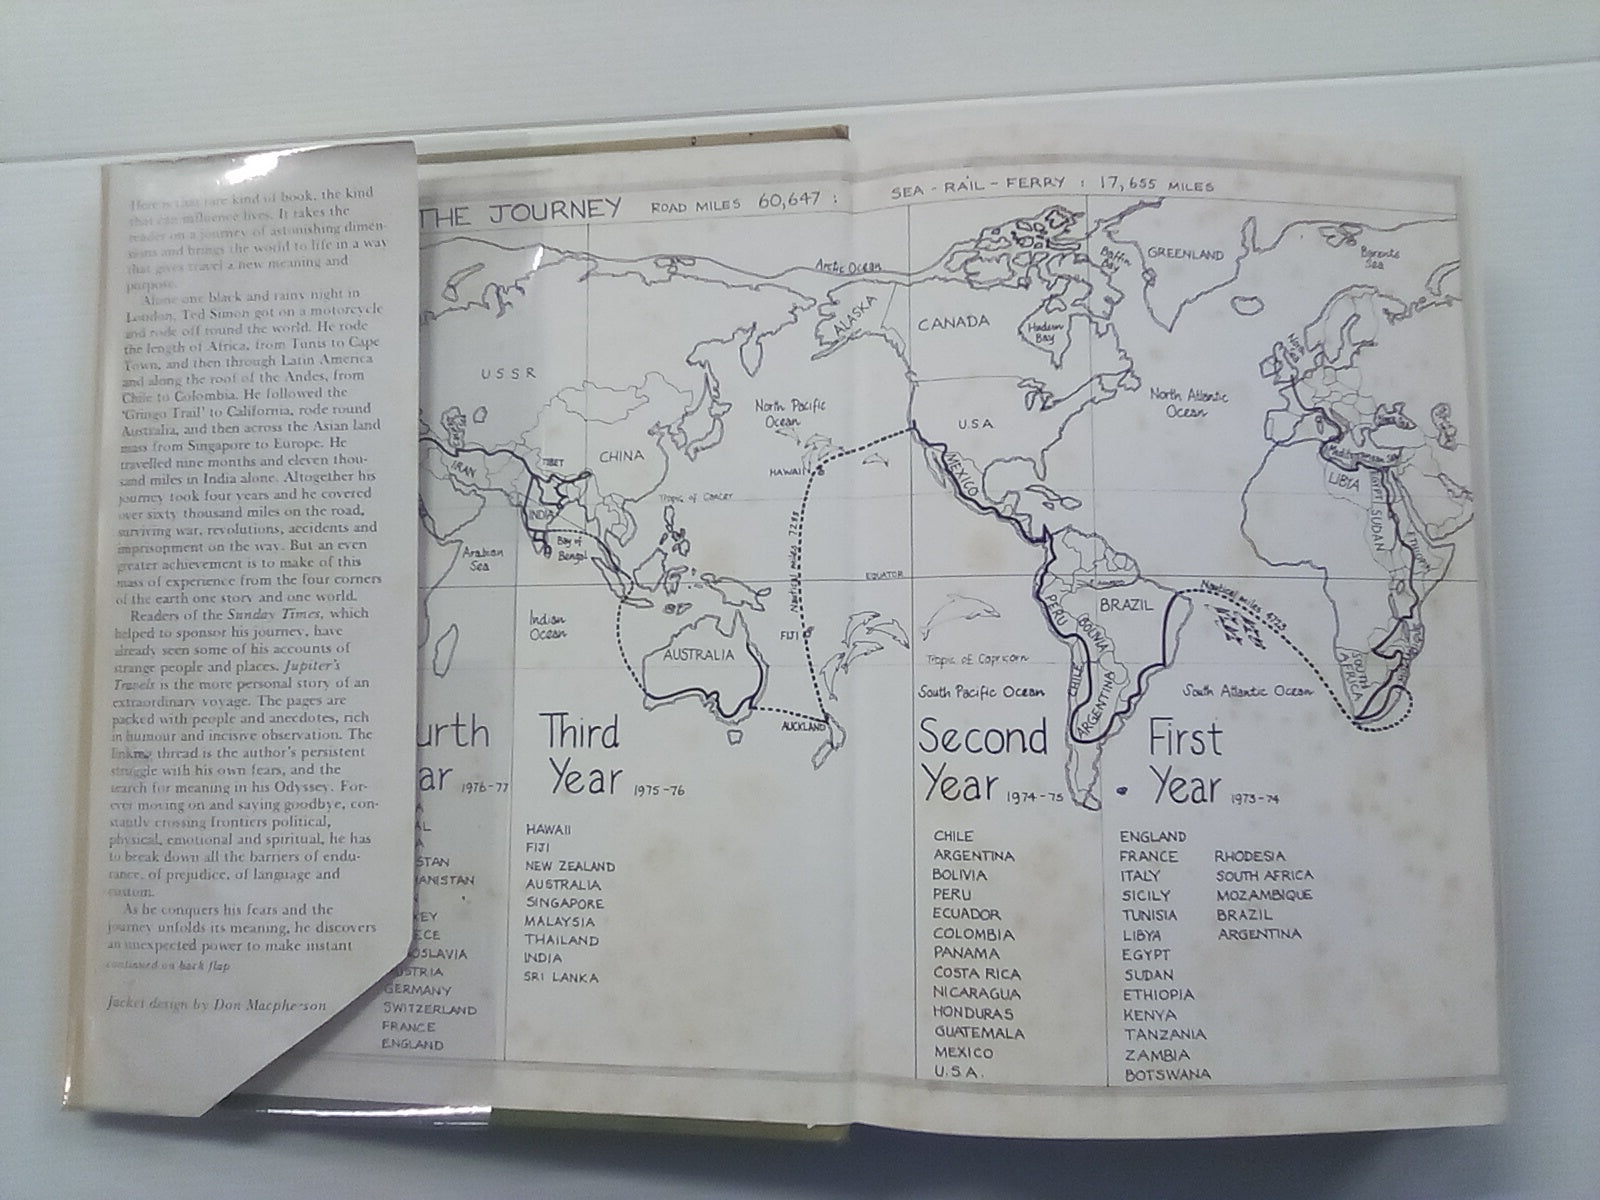 Here is that rare kind of book, the kind
that can influence lives. It takes the
reader on a journey of astonishing dimen-
sions and brings the world to life in a way
that gives travel a new meaning and
purpose.
Alone one black and rainy night in
London, Ted Simon got on a motorcycle
and rode off round the world. He rode
the length of Africa, from Tunis to Cape
Town, and then through Latin America
and along the roof of the Andes, from
Chile to Colombia. He followed the
'Gringo Trail' to California, rode round
Australia, and then across the Asian land
mass from Singapore to Europe. He
travelled nine months and eleven thou-
sand miles in India alone. Altogether his
journey took four years and he covered
over sixty thousand miles on the road,
surviving war, revolutions, accidents and
imprisonment on the way. But an even
greater achievement is to make of this
mass of experience from the four corners
of the earth one story and one world.
Readers of the Sunday Times, which
helped to sponsor his journey, have
already seen some of his accounts of
strange people and places. Jupiter's
Travels is the more personal story of an
extraordinary voyage. The pages are
packed with people and anecdotes, rich
in humour and incisive observation. The
linking thread is the author's persistent
struggle with his own fears, and the
search for meaning in his Odyssey. For-
ever moving on and saying goodbye, con-
stantly crossing frontiers political,
physical, emotional and spiritual, he has
to break down all the barriers of endu-
rance, of prejudice, of language and
custom.
As he conquers his fears and the
journey unfolds its meaning, he discovers
an unexpected power to make instant
continued on back flap
Jacket design by Don Macpherson
THE JOURNEY ROAD MILES 60,647 :
SEA - RAIL - FERRY : 17,655 MILES
Arctic Ocean
ALASKA
CANADA
Hudson
Bay
Baffin
Bay
GREENLAND
Barents
Sea
USSR
North Pacific
Ocean
North Atlantic
Ocean
USA
IRAN
TIBET
CHINA
HAWAII
MEXICO
Mediterranean Sea
LIBYA
EGYPT
SUDAN
ETHIOPIA
Tropic of Cancer
INDIA
Bay of
Bengal
Arabian
Sea
Nautical miles 7288
EQUATOR
BRAZIL
PERU
BOLIVIA
Nautical miles 4723
Indian
Ocean
FIJI
AUSTRALIA
Tropic of Capricorn
CHILE
ARGENTINA
SOUTH
AFRICA
South Pacific Ocean
South Atlantic Ocean
AUCKLAND
urth
ar 1976-77
AL
STAN
HANISTAN
KEY
ECE
OSLAVIA
USTRIA
GERMANY
SWITZERLAND
FRANCE
ENGLAND
Third
Year 1975-76
HAWAII
FIJI
NEW ZEALAND
AUSTRALIA
SINGAPORE
MALAYSIA
THAILAND
INDIA
SRI LANKA
Second
Year 1974-75
CHILE
ARGENTINA
BOLIVIA
PERU
ECUADOR
COLOMBIA
PANAMA
COSTA RICA
NICARAGUA
HONDURAS
GUATEMALA
MEXICO
U.S.A.
First
Year 1973-74
ENGLAND
FRANCE
ITALY
SICILY
TUNISIA
LIBYA
EGYPT
SUDAN
ETHIOPIA
KENYA
TANZANIA
ZAMBIA
BOTSWANA
RHODESIA
SOUTH AFRICA
MOZAMBIQUE
BRAZIL
ARGENTINA